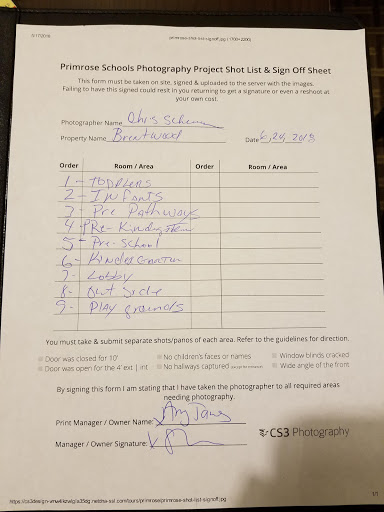 primrose-shot-list-signoff.jpg (1700×2200)
Primrose Schools Photography Project Shot List & Sign Off Sheet
This form must be taken on site, signed & uploaded to the server with the images.
Failing to have this signed could reslt in you returning to get a signature or even a reshoot at
your own cost.
Photographer Name Chris
Property Name Brentwood Date 6,24,2018
Order Room / Area Order Room / Area
1 - TODDLERS
2 - INfants
3 - Pre Pathways
4 - PRe-Kindergarten
5 - Pre-School
6 - Kindergarten
7 - Lobby
8 - Out Side
9 - Play grounds
You must take & submit separate shots/panos of each area. Refer to the guidelines for direction.
Door was closed for 10' No children's faces or names Window blinds cracked
Door was open for the 4' ext | int No hallways captured Wide angle of the front
By signing this form I am stating that I have taken the photographer to all required areas
needing photography.
Print Manager / Owner Name: Amy
Manager / Owner Signature:
CS3 Photography
1/1